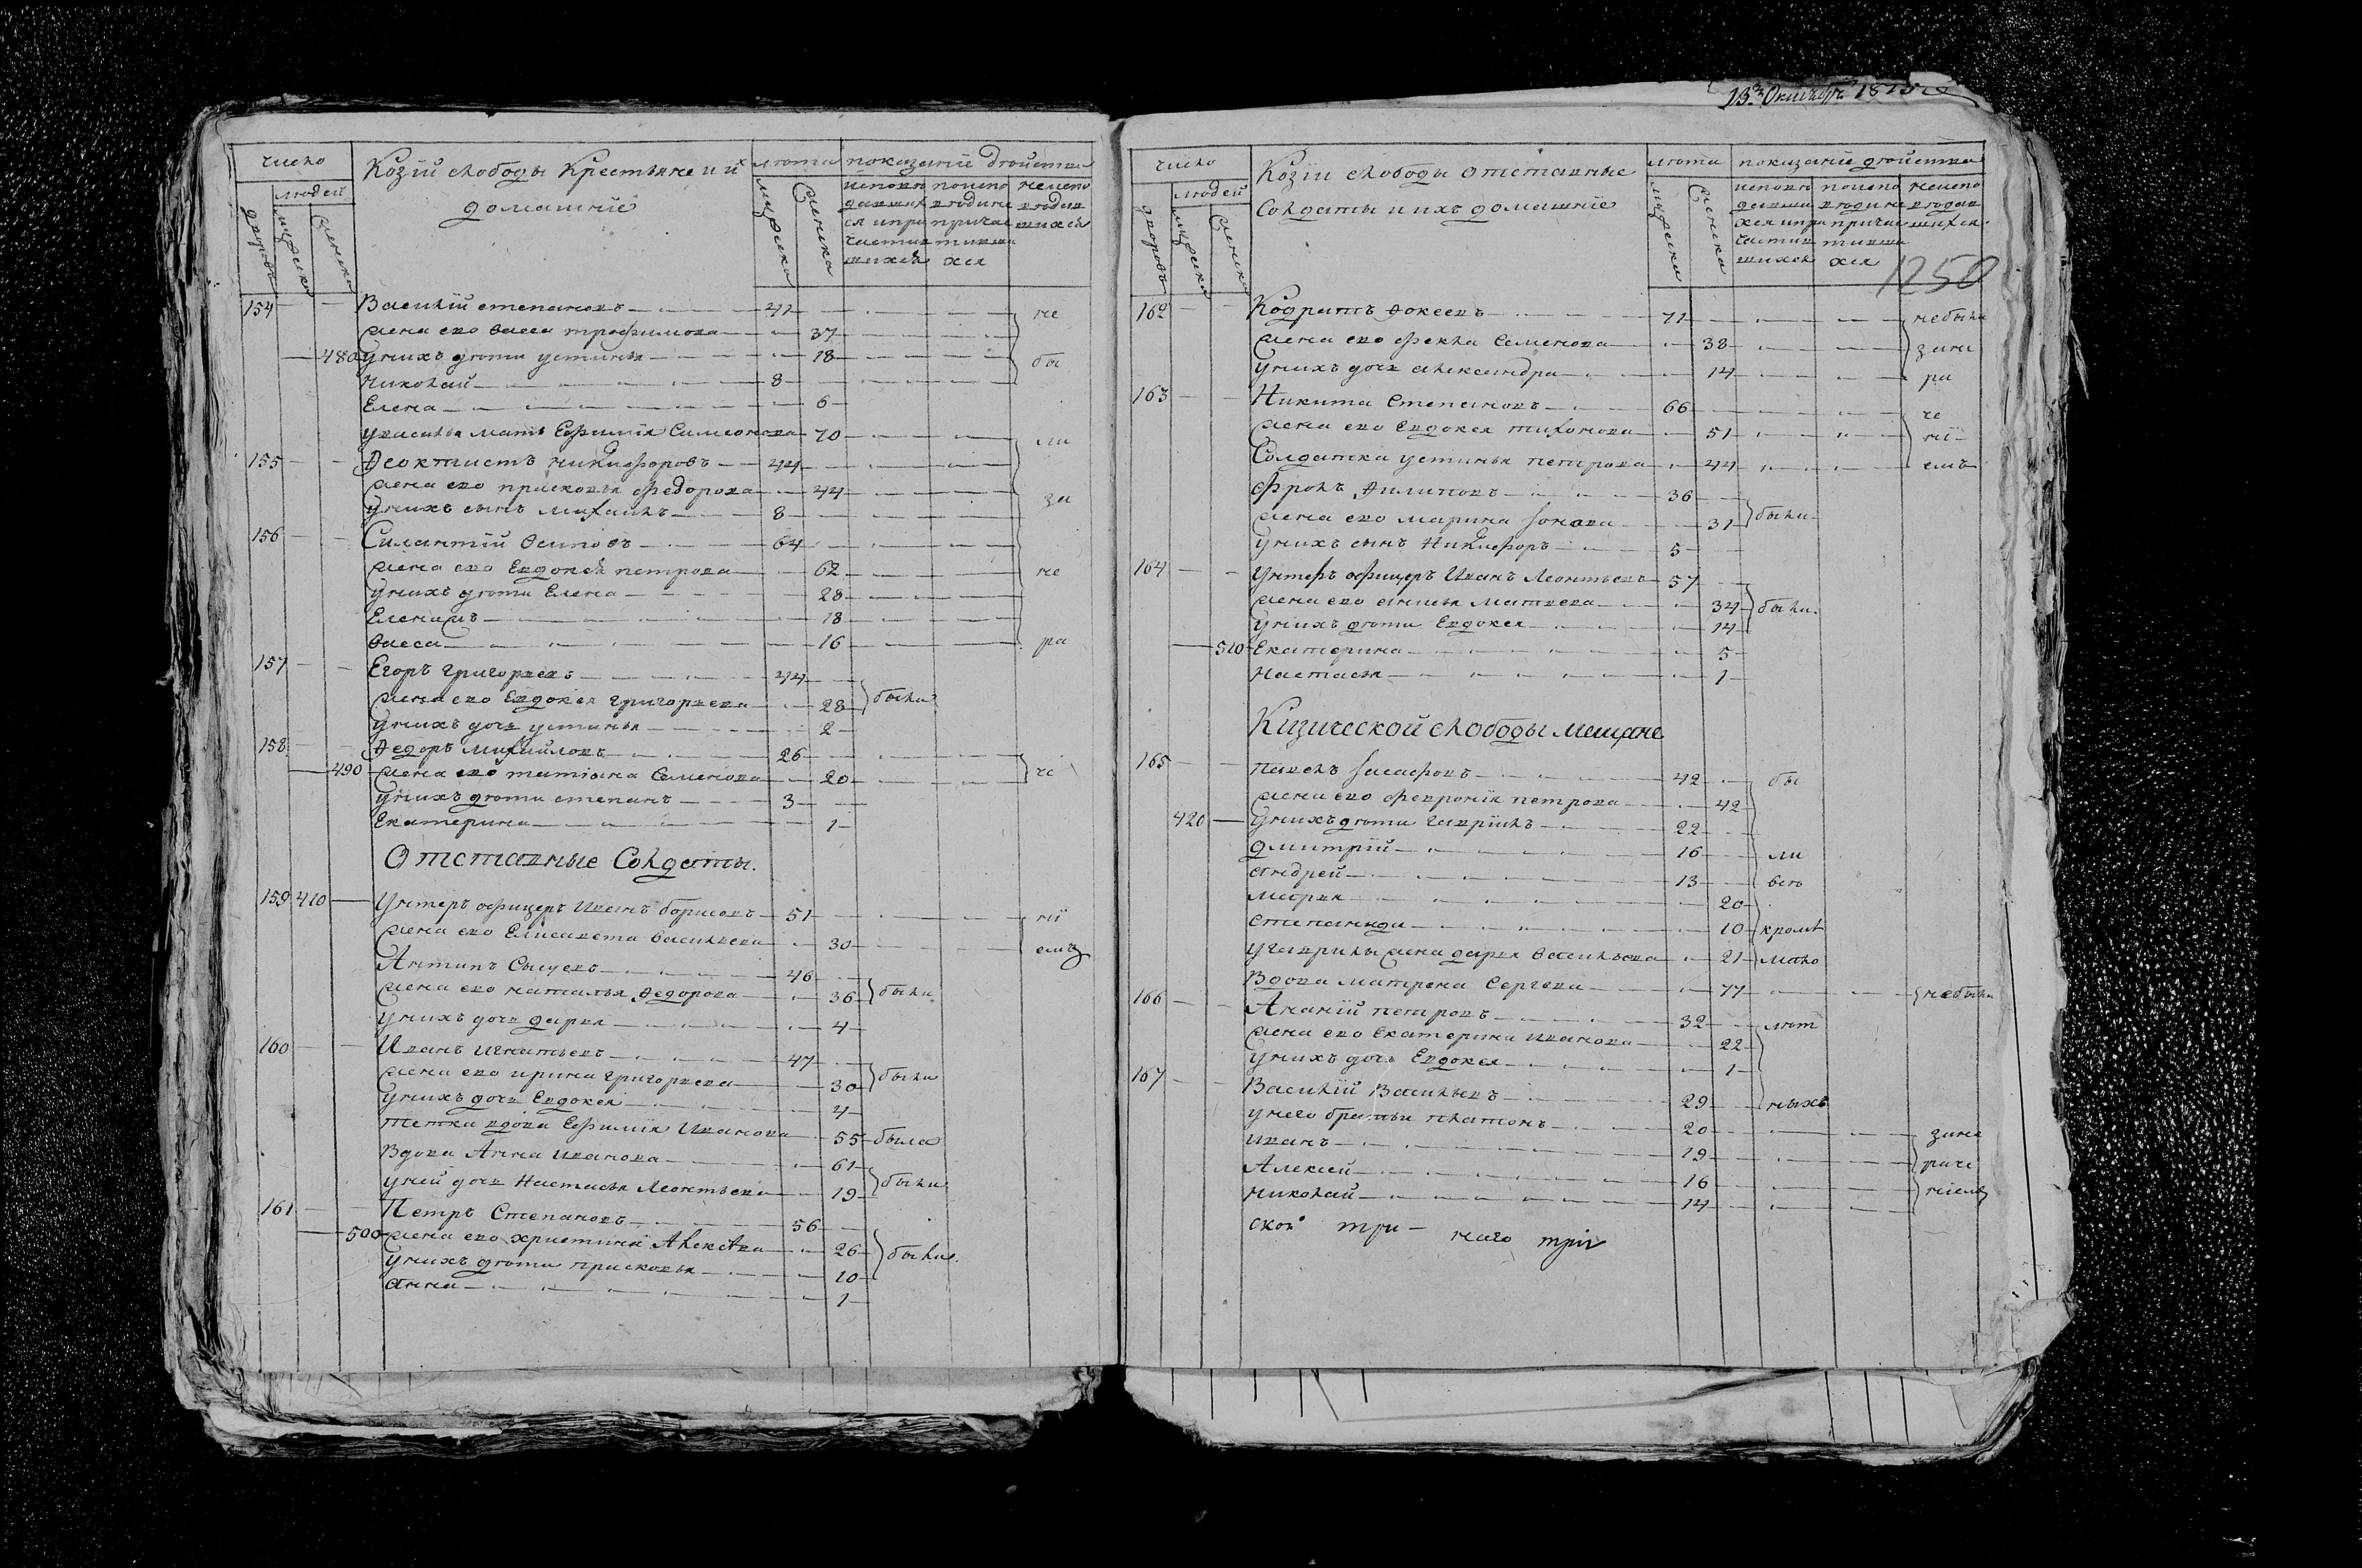 число
людей
дворовъ
мужеска
женска
Козiй слободы Крестьяне и их
домашнiе
лѣта
мужеска
женска
показанiе действа
исповѣ
давших
ся и при
частив
шихся
исповѣдыва
причас
тивши
хся
неиспо
вѣдав
шихся
154 Василiй степановъ 41 не
жена ево васса трофимова 37
480 у нихъ дѣти устинья 18 бы
николай 8
Елена 6
у василья мать Ефимiя Симеонова 70 ли
155 Ѳеоктистъ никифоровъ 44
жена ево прасковья федорова 44 за
у нихъ сынъ михаилъ 8
156 Силантiй Осиповъ 64
жена ево Евдокея петрова 62 не
у нихъ дѣти Елена 28
Елена жъ 18
васса 16 ра
157 Егоръ григорьевъ 44
жена ево Евдокея григорьева 28 были
у нихъ дочь устинья 2
158 Ѳедоръ михайловъ 26
490 жена ево татiана Семенова 20 че
у нихъ дѣти степанъ 3
Екатерина 1
Отставные Солдаты.
159 410 Унтеръ офицеръ Иванъ борисовъ 51 нi
жена ево Елисавета васильева 30 емъ
Антипъ Сысуевъ 46
жена ево наталья Ѳедорова 36 были
у нихъ дочь дарья 4
160 Иванъ игнатьевъ 47
жена ево ирина григорьева 30 были
у нихъ дочь Евдокея 4
тетка вдова Ефимiя Иванова 55 была
Вдова Анна иванова 61
у ней дочь Настасья Леонтьева 19 были
161 Петръ Степановъ 56
500 жена ево христина Алексѣева 26 были
у нихъ дѣти прасковья 10
анна 1
13го Октября 1815
число
людей
дворовъ
мужеска
женска
Козiи слободы отставные
Солдаты и ихъ домашнiе
лѣта
мужеска
женска
показанiе действа
1250
162 Кодратъ Фокеевъ 71 небыли
жена ево фекла Семенова 38 зане
у нихъ дочь александра 14 ра
163 Никита Степановъ 66 че
жена ево Евдокея тихонова 51 нiі
Солдатка устинья петрова 44 емъ
фролъ Филиповъ 36
жена ево марина Iонова 31 были
у нихъ сынъ Никифоръ 5
164 Унтеръ офицеръ Иванъ Леонтьевъ 57
жена ево анисья матвеева 34 были.
у нихъ дѣти Евдокея 14
510 Екатерина 5
Настасья 1
Кизической слободы мещане
165 павелъ Iасафовъ 42 бы
жена ево феврoнiя петрова 42
420 у нихъ дѣти гаврiилъ 22
дмитрiй 16 ли
андрей 13 всѣ
марья 20
степанида 10 кромѣ
у гаврилы жена дарья васильева 21 мало
Вдова матрена Сергеева 77 небыли
166 Ананiй петровъ 32 лѣт
жена ево Екатерина иванова 22
у нихъ дочь Евдокея 1
167 Василiй Васильевъ 29 ныхъ
у него братьи платонъ 20 зане
иванъ 19 раче
Алексей 16 нiемъ
николай 14
ской три— наго три